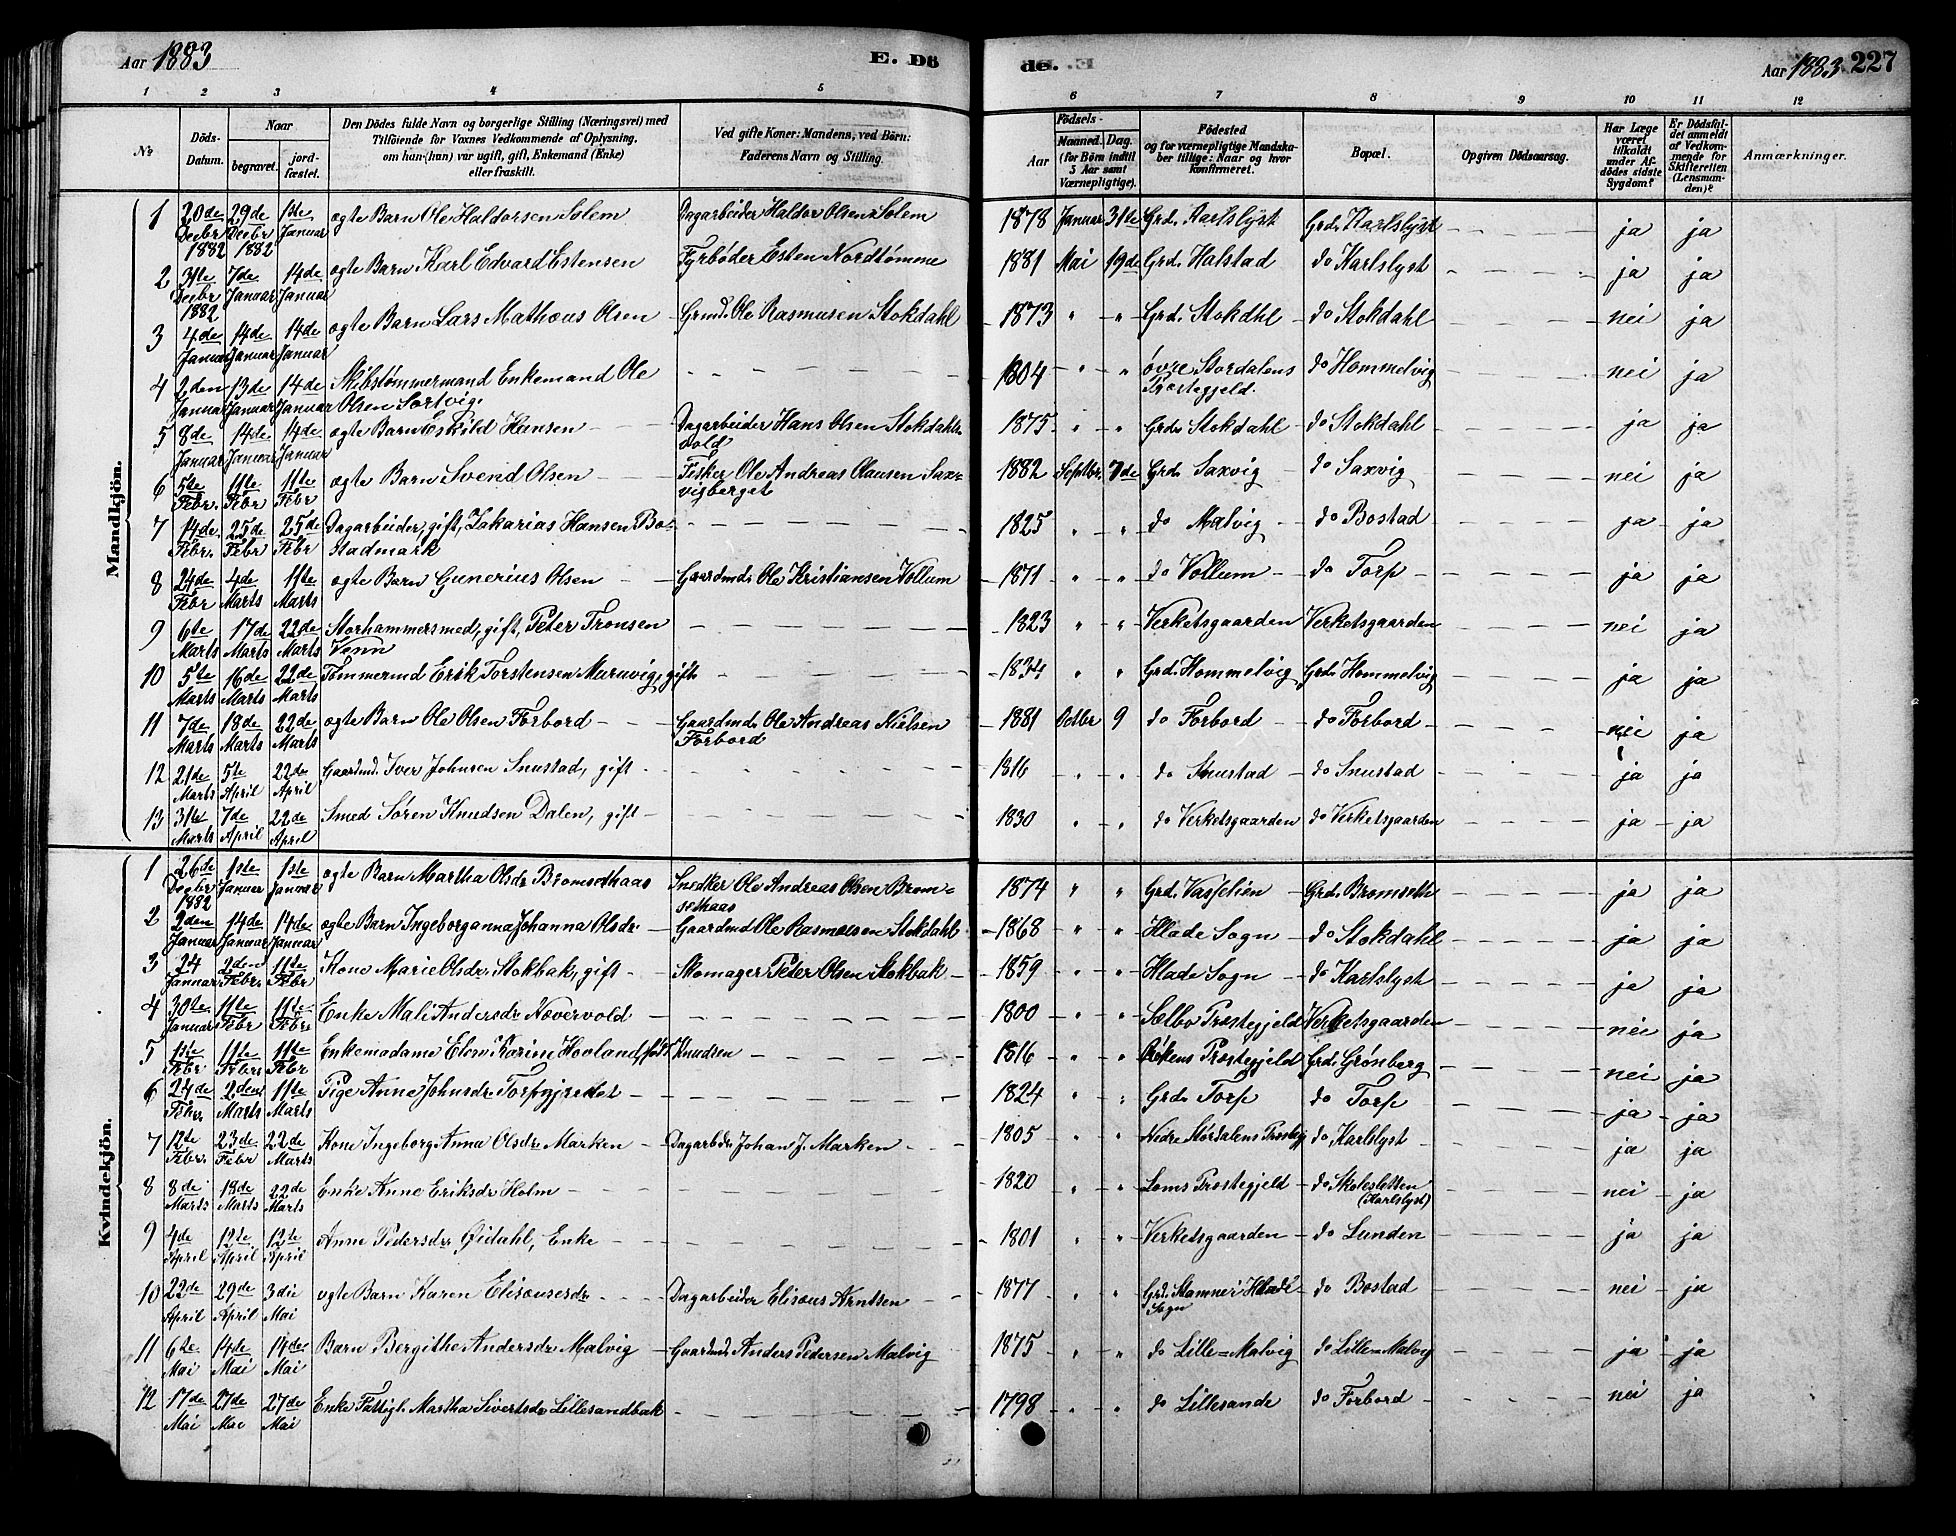 Aar 1883 E. Dö de. Aar 1883 227
1 2 3 4 5 6 7 8 9 10 11 12
№ Döds-Datum. Naar begravet. jordfæstet. Den Dödes fulde Navn og borgerlige Stilling (Næringsvei) med Tilföiende for Voxnes Vedkommende af Oplysning, om han (hun) var ugift, gift, Enkemand (Enke) eller fraskilt. Ved gifte Koner: Mandens, ved Börn: Faderens Navn og Stilling. Födsels- Aar Maaned. Dag. (for Börn indtil 5 Aar samt Værnepligtige). Födested og for værnepligtige Mandskaber tillige: Naar og hvor konfirmeret. Bopæl. Opgiven Dödsaarsag. Har Læge været tilkaldt under Afdödes sidste Sygdom? Er Dödsfaldet anmeldt af Vedkommende for Skifteretten (Lensmanden)? Anmærkninger.
Mandkjön.
1 20de Decbr 1882 29de Decbr 1882 1ste Januar ægte Barn Ole Haldorsen Solem Dagarbeider Haldor Olsen Solem 1878 Januar 31te Grd. Karlslyst Grd. Karlslyst ja ja
2 31te Decbr 1882 7de Januar 14de Januar ægte Barn Karl Edvard Estensen Fyrbøder Esten Nordtømme 1881 Mai 19de Grd. Halstad do Karlslyst ja ja
3 4de Januar 14de Januar 14de Januar ægte Barn Lars Mathæus Olsen Grmd. Ole Rasmusen Stokdahl 1873 " " Grd. Stokdhl do Stokdahl nei ja
4 2den Januar 13de Januar 14de Januar Skibstømmermand Enkemand Ole Olsen Sortvig. 1804 " " øvre Stordalens Præstegjeld. do Hommelvig nei ja
5 8de Januar 14de Januar 14de Januar ægte Barn Eskild Hansen Dagarbeider Hans Olsen Stokdahlsvold 1875 " " Grd. Stokdahl do Stokdahl ja ja
6 5te Febr. 11te Febr 11te Febr ægte Barn Svend Olsen Fisker Ole Andreas Olausen Saxvigberget 1882 Septbr. 7de Grd. Saxvig do Saxvig nei ja
7 14de Febr. 25de Febr 25de Febr Dagarbeider, gift, Zakarias Hansen Bostadmark 1825 " " do Malvig do Bostad ja ja
8 24de Febr 4de Marts 11te Marts ægte Barn Gunerius Olsen Gaardmd. Ole Kristiansen Vollum 1871 " " do Vollum do Torp ja ja
9 6te Marts 17de Marts 22de Marts Storhammersmed, gift, Peter Tronsen Venn 1823 " " Verketsgaarden Verketsgaarden nei ja
10 5te Marts 16de Marts 22de Marts Tømmermd Erik Torstensen Muruvig, gift 1834 " " Grd. Hommelvig Grd. Hommelvig ja ja
11 7de Marts 18de Marts 22de Marts ægte Barn Ole Olsen Forbord Gaardmd. Ole Andreas Nielsen Forbord 1881 Octbr 9 do Forbord do Forbord nei ja
12 21de Marts 5te April 22de April Gaardmd. Iver Johnsen Snustad, gift 1816 " " do Snustad do Snustad ja ja
13 31te Marts 7de April 22de April Smed Søren Knudsen Dalen, gift 1830 " " do Verketsgaarden do Verketsgaarden ja ja
Kvindekjön.
1 26de Decbr 1882 1ste Januar 1ste Januar ægte Barn Martha Olsdr. Bromsethaas Snedker Ole Andreas Olsen Bromsethaas 1874 " " Grd. Vasfelien Grd. Bromseth ja ja
2 2den Januar 14de Januar 14de Januar ægte Barn Ingeborganna Johanna Olsdr. Gaardmd Ole Rasmussen Stokdahl 1868 " " Hlade Sogn do Stokdahl ja ja
3 24 Januar 2den Febr. 11te Febr Kone Marie Olsdr. Stokbak, gift Skomager Peter Olsen Stokbak 1859 " " Hlade Sogn do Karlslyst ja ja
4 30te Januar 11te Febr 11te Febr. Enke Mali Andersdr Nævervold 1800 " " Sælbo Præstegjeld Verketsgaarden nei ja
5 1ste Febr 11te Febr 11te Febr Enkemadame Elen Karine Hovland, født Knudsen 1816 " " Præstegjeld Grd. Grønberg nei ja
6 24de Febr. 2den Marts 11te Marts Pige Anne Johnsdr. Torpgjerdet 1824 " " Grd. Torp do Torp ja ja
7 12te Febr. 23de Febr 22de Marts Kone Ingeborg Anna Olsdr. Marken Dagarbdr. Johan J. Marken 1805 " " Nedre Størdalens Præstegj do Karlslyst ja ja
8 8de Marts 18de Marts 22de Marts Enke Anne Eriksdr Holm 1820 " " Loms Præstegjeld do Skolesletten (Karlslyst) nei ja
9 4de April 12te April 12te April Anne Pedersdr Øidahl, Enke 1801 " " Verketsgaarden do Lunden ja ja
10 22de April 29de April 3die Mai ægte Barn Karen Elisæusesdr Dagarbeider Elisæus Arntsen 1877 " " Grd. Stamner i Hlade Sogn do Bostad nei ja
11 6te Mai 14de Mai 14de Mai Barn Bergithe Andersdr. Malvig Gaardmd. Anders Pedersen Malvig 1875 " " do Lille-Malvig do Lille-Malvig ja ja
12 17de Mai 27de Mai 27de Mai Enke Fattigl. Martha Sivertsdr Lillesandbak 1798 " " do Lillesande do Forbord nei ja